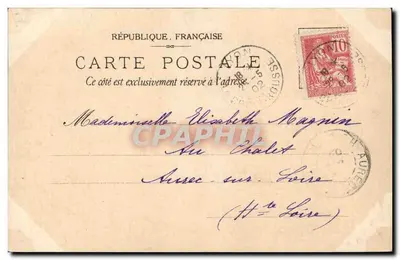 RÉPUBLIQUE FRANÇAISE
CARTE POSTALE
Ce côté est exclusivement réservé à l'adresse.
10
Mademoiselle Elisabeth Magnin
Au Chalet
Aurec-sur-Loire
(Hte Loire)
AUREC